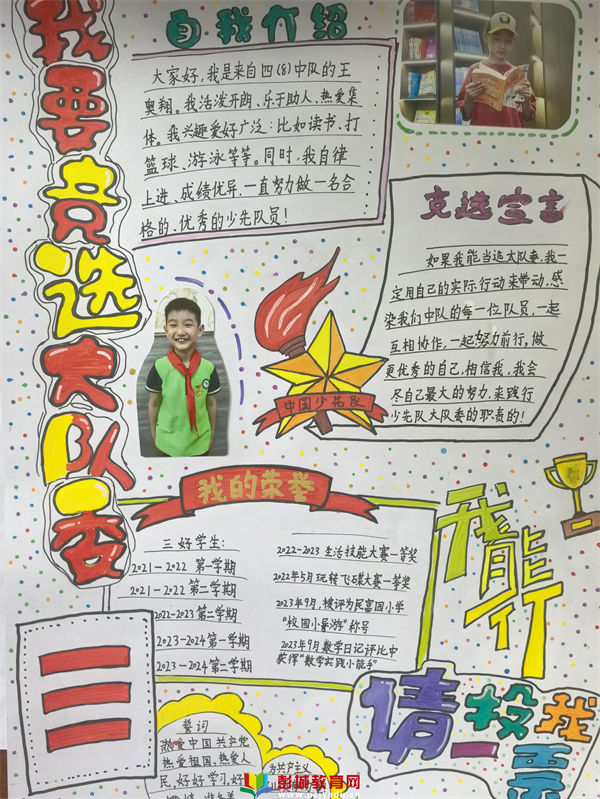 我要竞选大队委
自我介绍
大家好,我是来自四(8)中队的王
奥翔。我活泼开朗、乐于助人、热爱集
体。我兴趣爱好广泛:比如读书、打
篮球、游泳等等。同时,我自律
上进、成绩优异,一直努力做一名合
格的、优秀的少先队员!
竞选宣言
如果我能当选大队委,我一
定用自己的实际行动来带动,感
染我们中队的每一位队员,一起
互相协作,一起努力前行,做
更优秀的自己,相信我,我会
尽自己最大的努力,来践行
少先队大队委的职责的!
中国少先队
我的荣誉
三好学生:
2021-2022 第一学期
2021-2022 第二学期
2022-2023 第二学期
2023-2024 第一学期
2023-2024 第二学期
2022-2023 生活技能大赛一等奖
2022年5月玩转飞碟大赛一等奖
2023年9月,被评为民富园小学
"校园小
称号
2023年9月数学日记评比中
获得"数学实践小能手"
我能行
请投我一票
誓词
热爱中国共产党
热爱祖国,热爱人
民,好好学习,好
为共产主义
彭城教育网